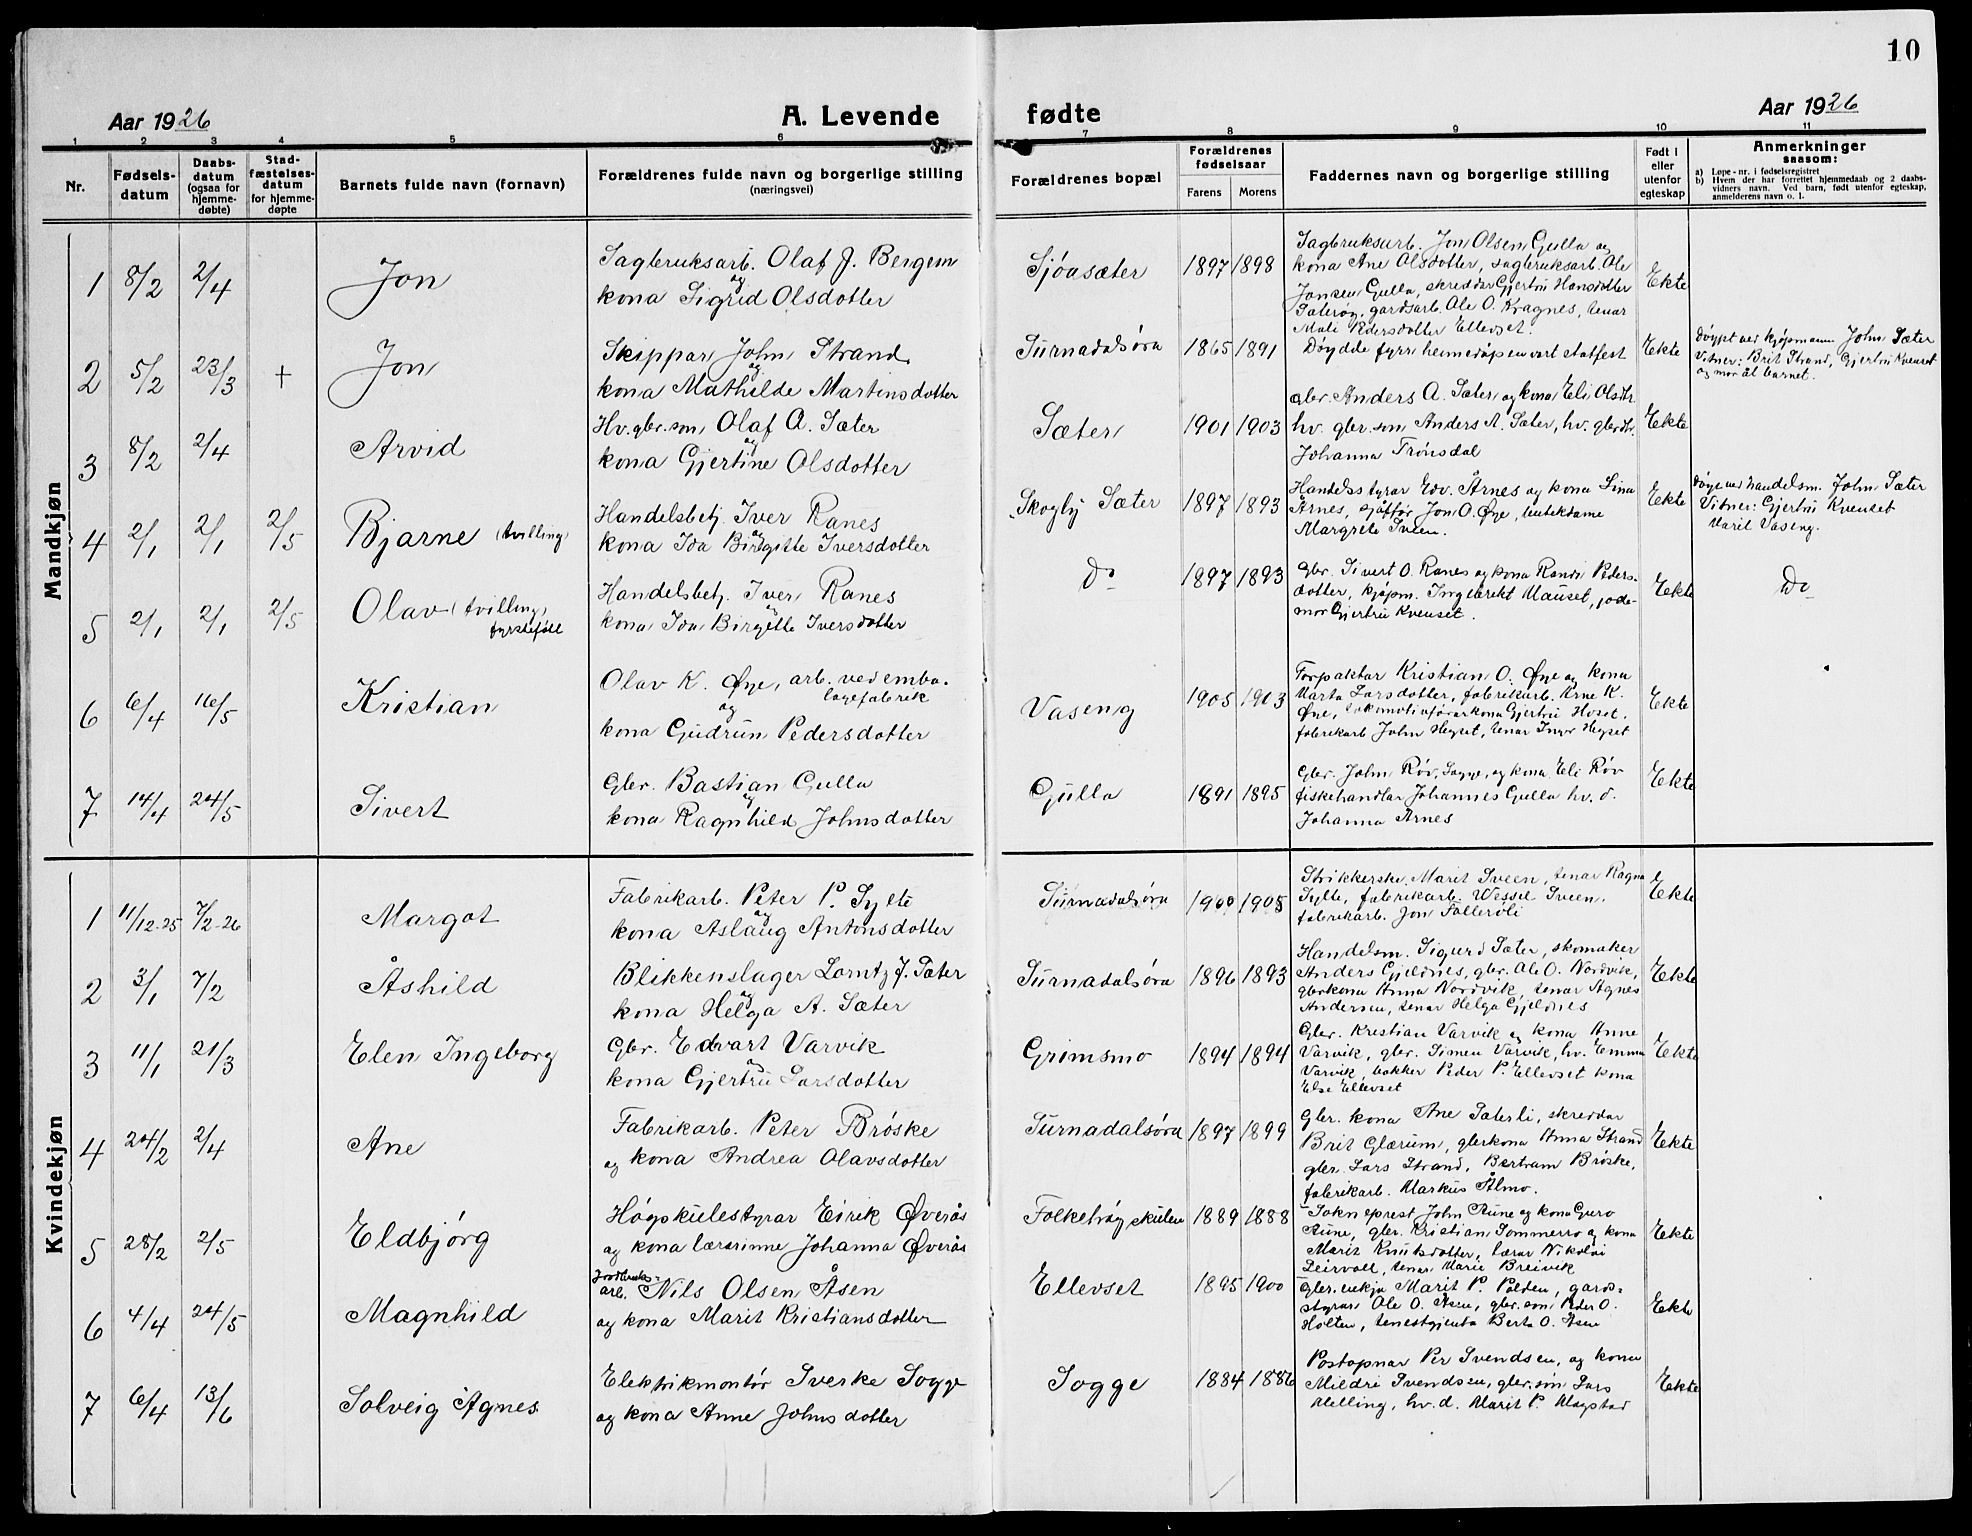 10
Aar 1926
A. Levende
fødte
Aar 1926
1 2 3 4 5 6 7 8 9 10 11
Nr.
Fødsels-
datum
Daabs-
datum
(ogsaa for
hjemme-
døbte)
Stad-
fæstelses-
datum
for hjemme-
døpte
Barnets fulde navn (fornavn)
Forældrenes fulde navn og borgerlige stilling
(næringsvei)
Forældrenes bopæl
Forældrenes
fødselsaar
Farens
Morens
Faddernes navn og borgerlige stilling
Født i
eller
utenfor
egteskap
Anmerkninger
saasom:
a) Løpe-nr. i fødselsregistret
b) Hvem der har forrettet hjemmedaab og 2 daabs-
vidners navn. Ved barn, født utenfor egteskap,
anmelderens navn o. l.
Mandkjøn
1 8/2 2/4 Jon
Sagbruksarb. Olaf J. Bergem
og
kona Sigrid Olsdotter
Sjøasæter 1897 1898
Sagbruksarb. Jon Olsen Gulla og
kona Ane Olsdotter, sagbruksarb. Ole
Jonsen Gulla, skreddar Gjertru Hansdotter
Sæterøy, gardsarb. Ole O. Kragnes, tenar
Mali Pedersdotter Ellevset.
Ekte
2 5/2 23/3 + Jon
Skippar John Strand
og
kona Mathilde Martinsdotter
Surnadalsøra 1865 1891
Døydde fyrr heimedåpen vart statfest
Ekte
Døypt ved kjøpmann John Sæter
Vitner: Brit Strand, Gjertru Kvenset
og mor åt barnet.
3 8/2 2/4 Arvid
Hv. gbr. son Olaf A. Sæter
og
kona Gjertine Olsdotter
Sæter 1901 1903
gbr. Anders A. Sæter og kona Eli Olsdtr.
hv. gbr. son Anders A. Sæter, hv. gbr.dtr.
Johanna Trønsdal
Ekte
4 2/1 2/1 2/5 Bjarne (tvilling)
Handelsbetj. Iver Ranes
og
kona Ida Birgitte Iversdotter
Skogly Sæter 1897 1893
Handelsstyrar Edv. Årnes og kona Lina
Årnes, sjåfør Jon O. Øye, butikdame
Margrete Sveen.
Ekte
Døypt ved handelsm. John Sæter
Vitner: Gjertru Kvenset
Marit Vaseng.
5 2/1 2/1 2/5 Olav (tvilling)
fyrstefødt
Handelsbetj. Iver Ranes
og
kona Ida Birgitte Iversdotter
Do 1897 1893
Gbr. Sivert O. Ranes og kona Randi Peders-
dotter, kjøpm. Ingebrikt Mauset, jode-
mor Gjertru Kvenset.
Ekte
Do
6 6/4 16/5 Kristian
Olav K. Øye, arb. ved emba-
lagefabrik
og
kona Gudrun Pedersdotter
Vaseng 1905 1903
Forpaktar Kristian O. Øye og kona
Marta Larsdotter, fabrikarb. Arne K.
Øye, lokomotivførarkona Gjertru Hoset.
fabrikarb John Heyset, tenar Inga Heyset
Ekte
7 14/4 24/5 Sivert
Gbr. Bastian Gulla
og
kona Ragnhild Johnsdotter
Gulla 1891 1895
Gbr. John Røv, Sogge, og kona Eli Røv
fiskehandlar Johannes Gulla hv. d.
Johanna Årnes
Ekte
Kvindekjøn
1 11/12-25 7/2-26 Margot
Fabrikarb. Peter P. Sylte
og
kona Aslaug Antonsdotter
Surnadalsøra 1900 1905
Strikkerske Marit Sveen, tenar Ragna
Sylte, fabrikarb. Wessel Sveen,
fabrikarb. Jon Sollerøli
Ekte
2 3/1 7/2 Åshild
Blikkenslager Lorntz J. Sæter
og
kona Helga A. Sæter
Surnadalsøra 1896 1893
Handelsm. Sigurd Sæter, skomaker
Anders Gjeldnes, gbr. Ole O. Nordvik,
gbrkona Anna Nordvik, tenar Agnes
Andersen, tenar Helga Gjeldnes
Ekte
3 11/1 21/3 Elen Ingeborg
Gbr. Edvart Varvik
og
kona Gjertru Larsdotter
Grimsmo 1894 1894
Gbr. Kristian Varvik og kona Anne
Varvik, gbr. Simen Varvik, hv. Emma
Varvik, bakker Peder P. Ellevset kona
Else Ellevset
Ekte
4 24/2 2/4 Ane
Fabrikarb. Peter Brøske
og kona Andrea Olavsdotter
Surnadalsøra 1897 1899
Gbr. kona Ane Sæterli, skreddar
Brit Glærum, gbrkona Anna Strand
gbr. Lars Strand, Bertram Brøske,
fabrikarb. Markus Ålmo.
Ekte
5 28/2 2/5 Eldbjørg
Høgskulestyrar Eirik Øverås
og kona lærarinne Johanna Øverås
Folkehøgskulen 1889 1888
Sokneprest John Aune og kona Guro
Aune, gbr. Kristian Sommerro og kona
Marit Knutsdotter, lærar Nikolai
Leirvoll, tenar Marie Breivik
Ekte
6 4/4 24/5 Magnhild
Jordbruks-
arb. Nils Olsen Åsen
og kona Marit Kristiansdotter
Ellevset 1895 1900
Gbr. enkja Marit P. Polden, gards-
styrar Ole O. Åsen, gbr. son Peder O.
Holten, tenestgjenta Berta O. Åsen
Ekte
7 6/4 13/6 Solveig Agnes
Elektrikmontør Sverke Sogge
og kona Anne Johnsdotter
Sogge 1884 1886
Postopnar Per Svendsen, og kona
Mildri Svendsen, gbr. son Lars
Melling, hv. d. Marit P. Mogstad
Ekte